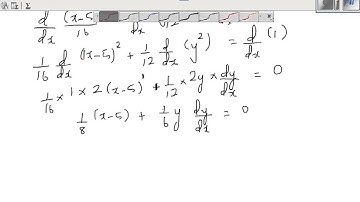 d/dx (x-5 / 16 d/dx d/dx
1/16 d/dx (x-5)² + 1/12 d/dx (y²) = d/dx (1)
1/16 × 1 × 2 (x-5)¹ + 1/12 × 2y × dy/dx = 0
1/8 (x-5) + 1/6 y dy/dx = 0